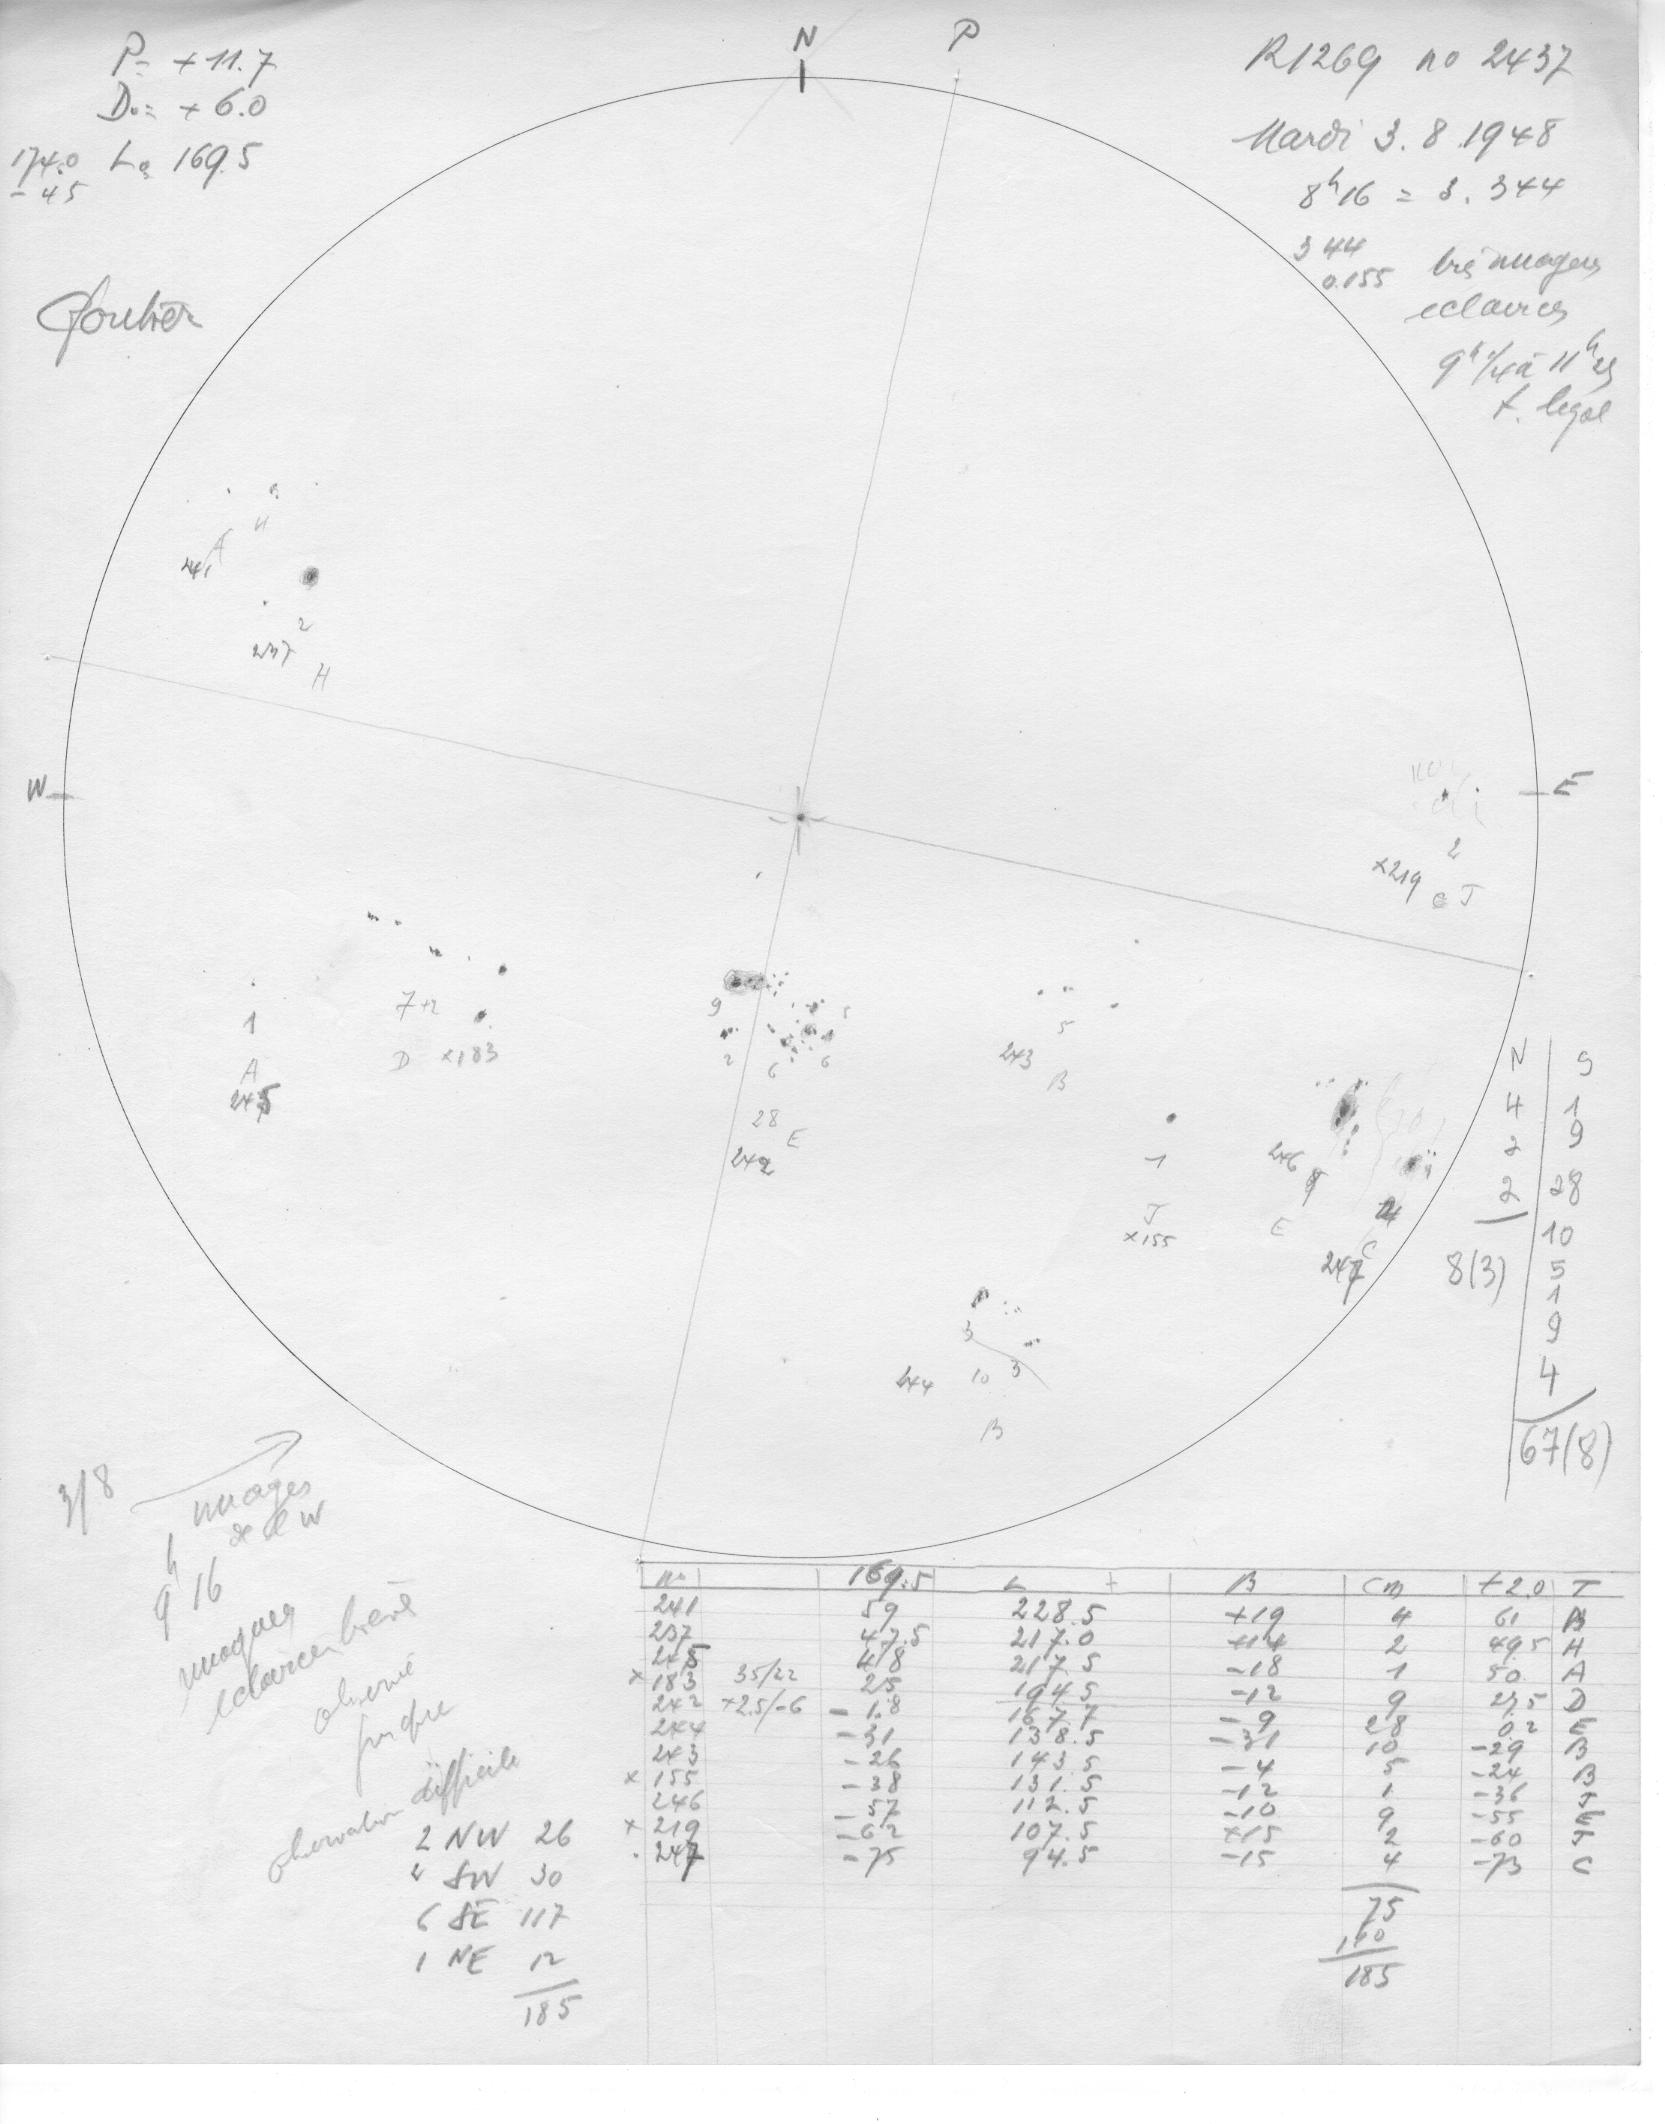 N P
P= +11.7
D₀= +6.0
174.0 L₀ 169.5
-4.5
R1269 no 2437
Mardi 3.8.1948
8h16 = 3.344
344
0.155
très nuageux
eclaircies
t. legal
H
A
241
2
237
H
W
E
2
×219
J
1
A
245
7+2
D ×183
9
5
2
6
6
28
E
242
5
243
B
1
J
×155
246
9
E
4
C
247
3
3
10
244
B
N S
4 1
2 9
2 28
8(3) 10
5
1
9
4
67(8)
3/8
nuages
W
9h16
nuages
observé
observation difficile
2 NW 26
2 SW 30
6 SE 117
1 NE 12
185
no 169.5 L B Cm +2.0 T
241 59 228.5 +19 4 61
237 47.5 217.0 +14 2 49.5 H
245 48 217.5 -18 1 50 A
× 183 35/22 25 194.5 -12 9 27.5 D
242 +2.5/-6 -1.8 167.7 -9 28 0.2 E
244 -31 138.5 -31 10 -29 B
243 -26 143.5 -4 5 -24 B
× 155 -38 131.5 -12 1 -36 J
246 -57 112.5 -10 9 -55 E
× 219 -62 107.5 +15 2 -60 J
247 -75 94.5 -15 4 -73 C
75
110
185